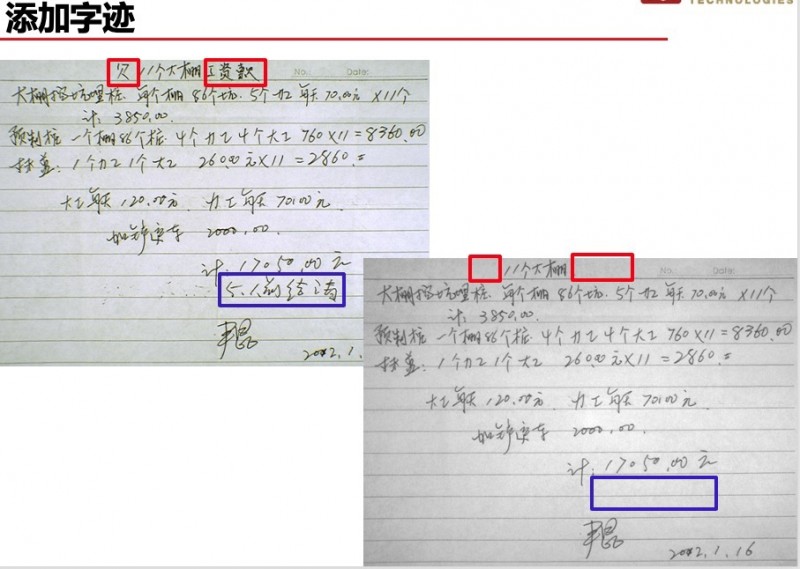 添加字迹
TECHNOLOGIES
欠11个大棚工资款
No. Date:
大棚挖坑埋桩 每个棚 86个坑. 5个力工 每天 70.00元 ×11个
计 3850.00.
预制桩 一个棚86个桩 4个力工 4个大工 760×11=8360.00
扶盖: 1个力工 1个大工 260.00元×11=2860.=
大工每天 120.00元. 力工每天 70.00元.
2000.00.
计. 17050.00元
5.1前给清
2012.1.
11个大棚
No. Date:
大棚挖坑埋桩 每个棚 86个坑. 5个力工 每天 70.00元 ×11个
计 3850.00.
预制桩 一个棚86个桩 4个力工 4个大工 760×11=8360.00
扶盖: 1个力工 1个大工 260.00元×11=2860.=
大工每天 120.00元. 力工每天 70.00元.
2000.00.
计. 17050.00元
2012.1.16